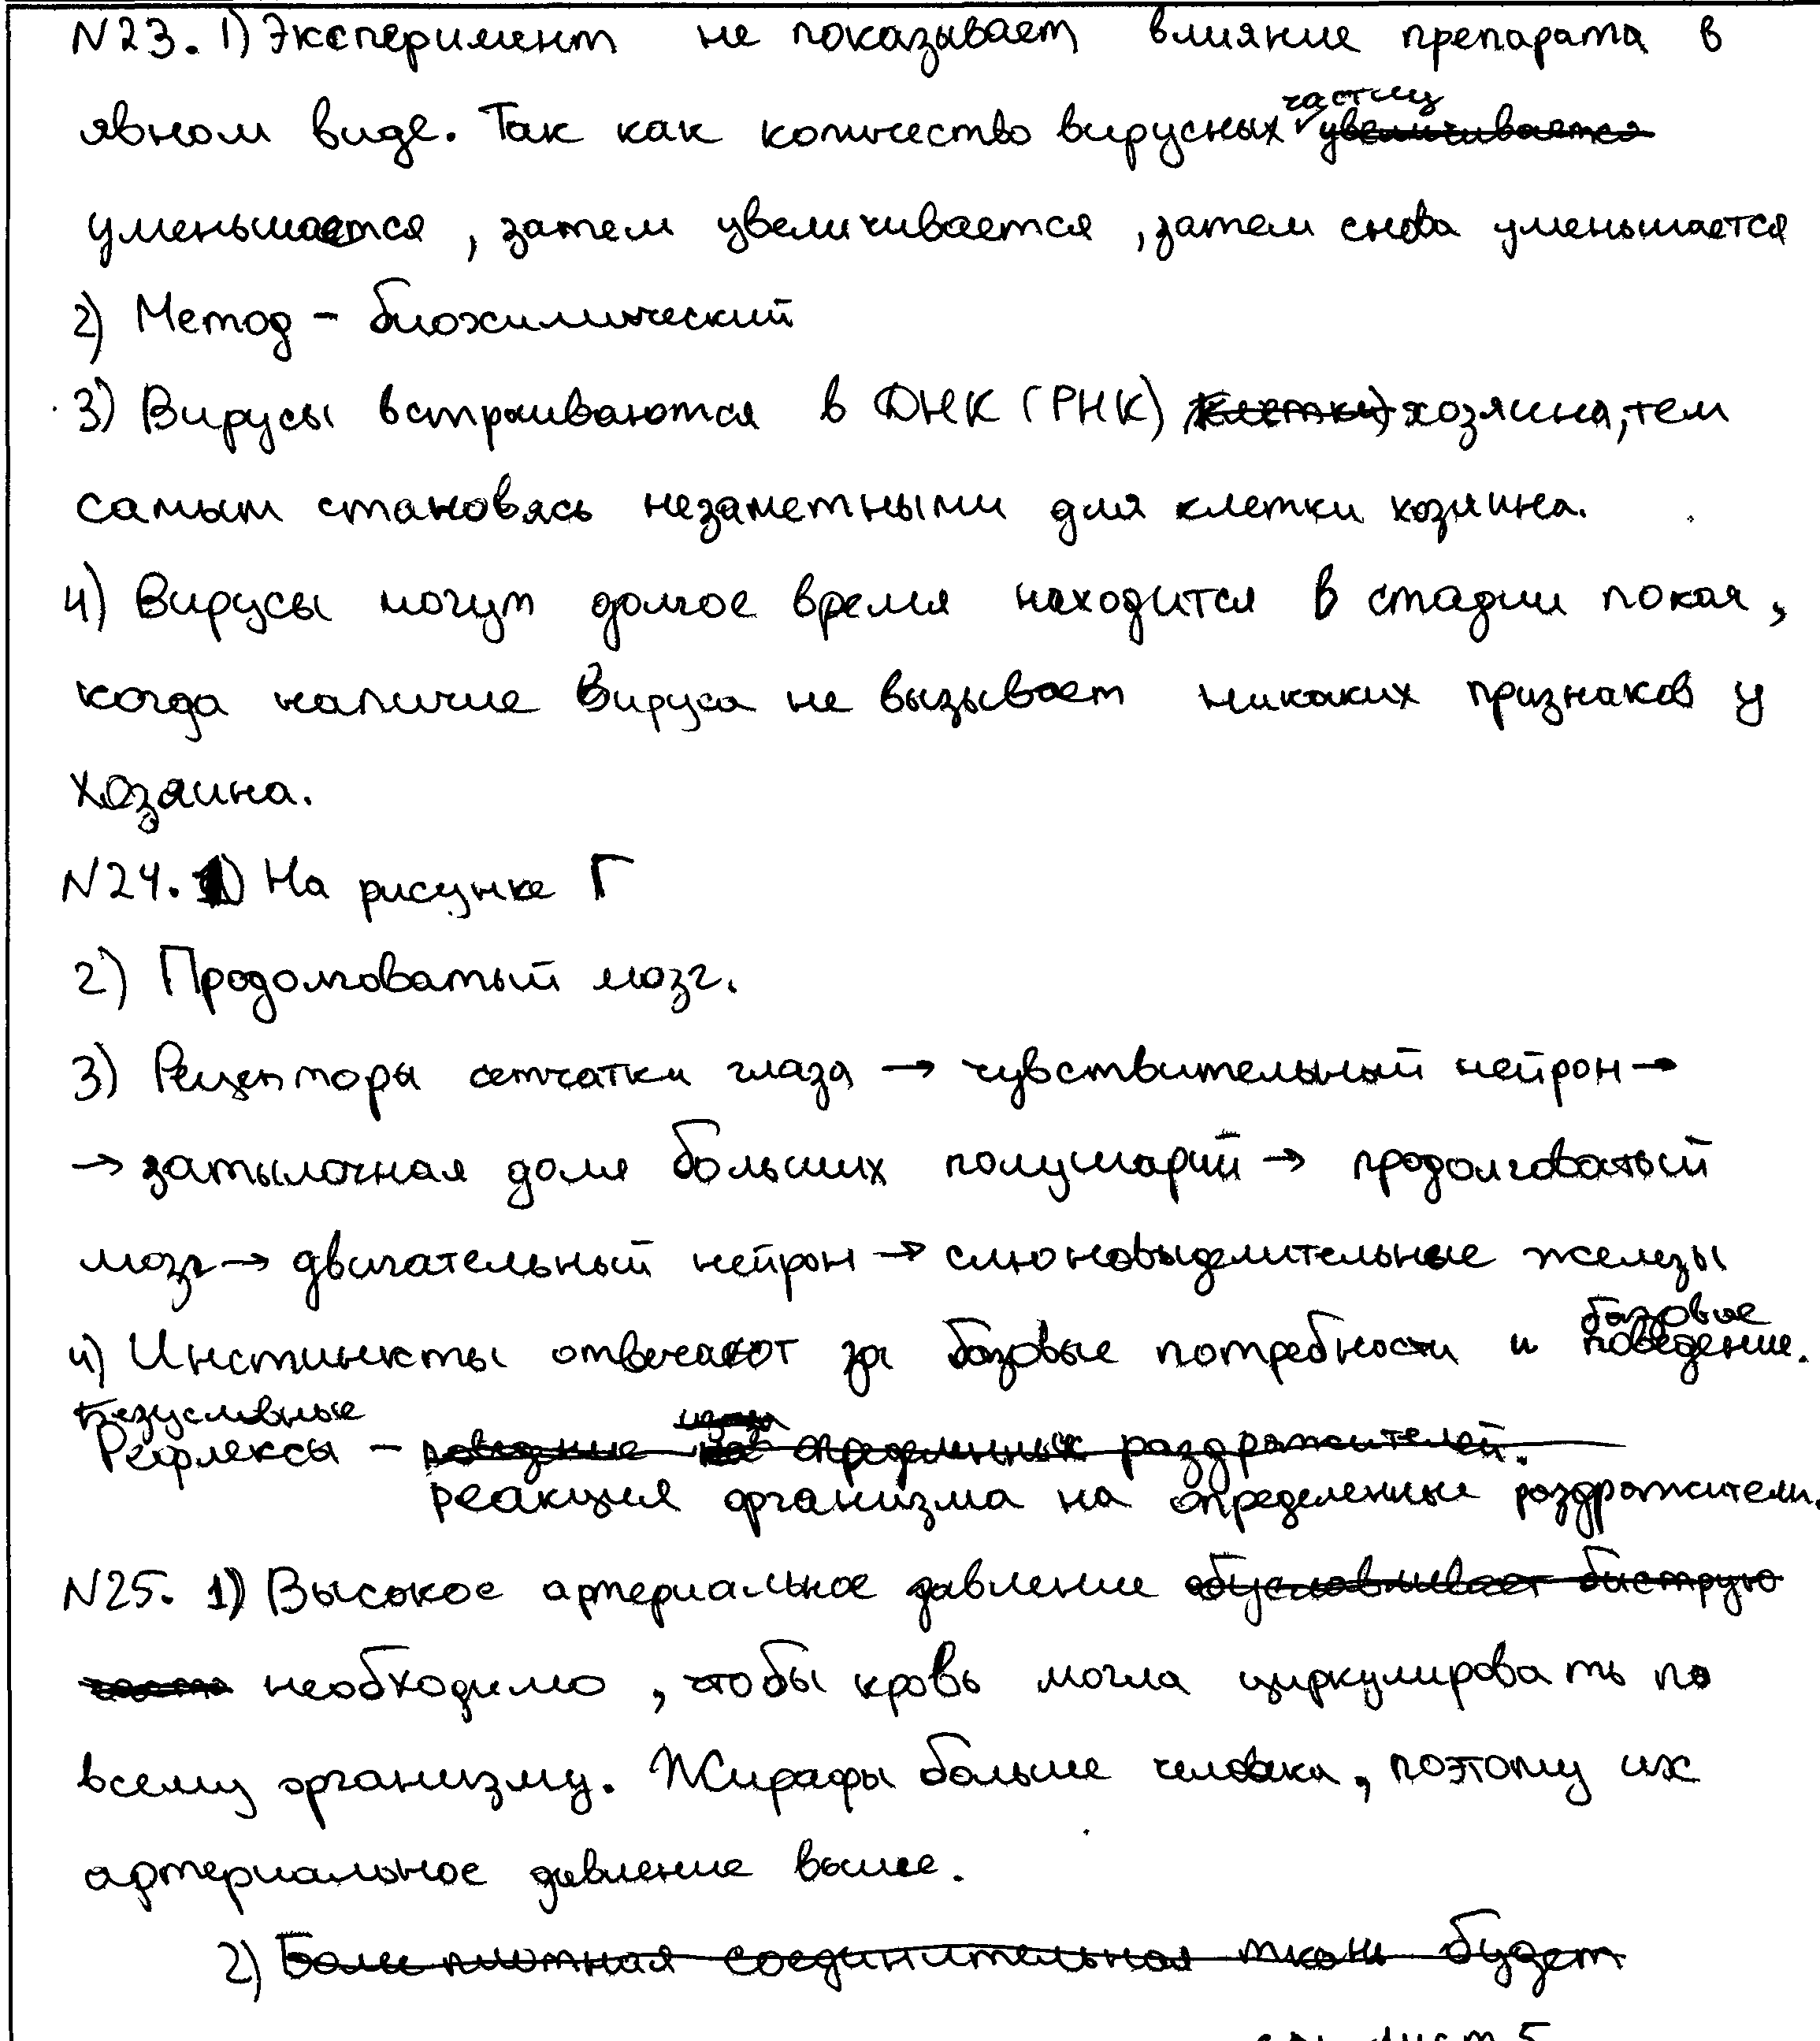 N23. 1) Эксперимент не показывает влияние препарата в
явном виде. Так как количество вирусных частиц увеличивается
уменьшается, затем увеличивается, затем снова уменьшается
2) Метод - биохимический
3) Вирусы встраиваются в ДНК (РНК) клетки) хозяина, тем
самым становясь незаметными для клетки хозяина.
4) Вирусы могут долгое время находится в стадии покоя,
когда наличие вируса не вызывает никаких признаков у
хозяина.
N24. 1) На рисунке Г
2) Продолговатый мозг.
3) Рецепторы сетчатки глаза → чувствительный нейрон →
→ затылочная доля больших полушарий → продолговатый
мозг → двигательный нейрон → слюновыделительные железы
4) Инстинкты отвечают за базовые потребности и базовые поведение.
Безусловные
Рефлексы - поведение на определенных раздражителей.
реакция организма на определенные раздражители.
N25. 1) Высокое артериальное давление обуславливает быструю
необходимо, чтобы кровь могла циркулировать по
всему организму. Жирафы больше человека, поэтому их
артериальное давление выше.
2) Более плотная соединительная ткань будет
лист 5